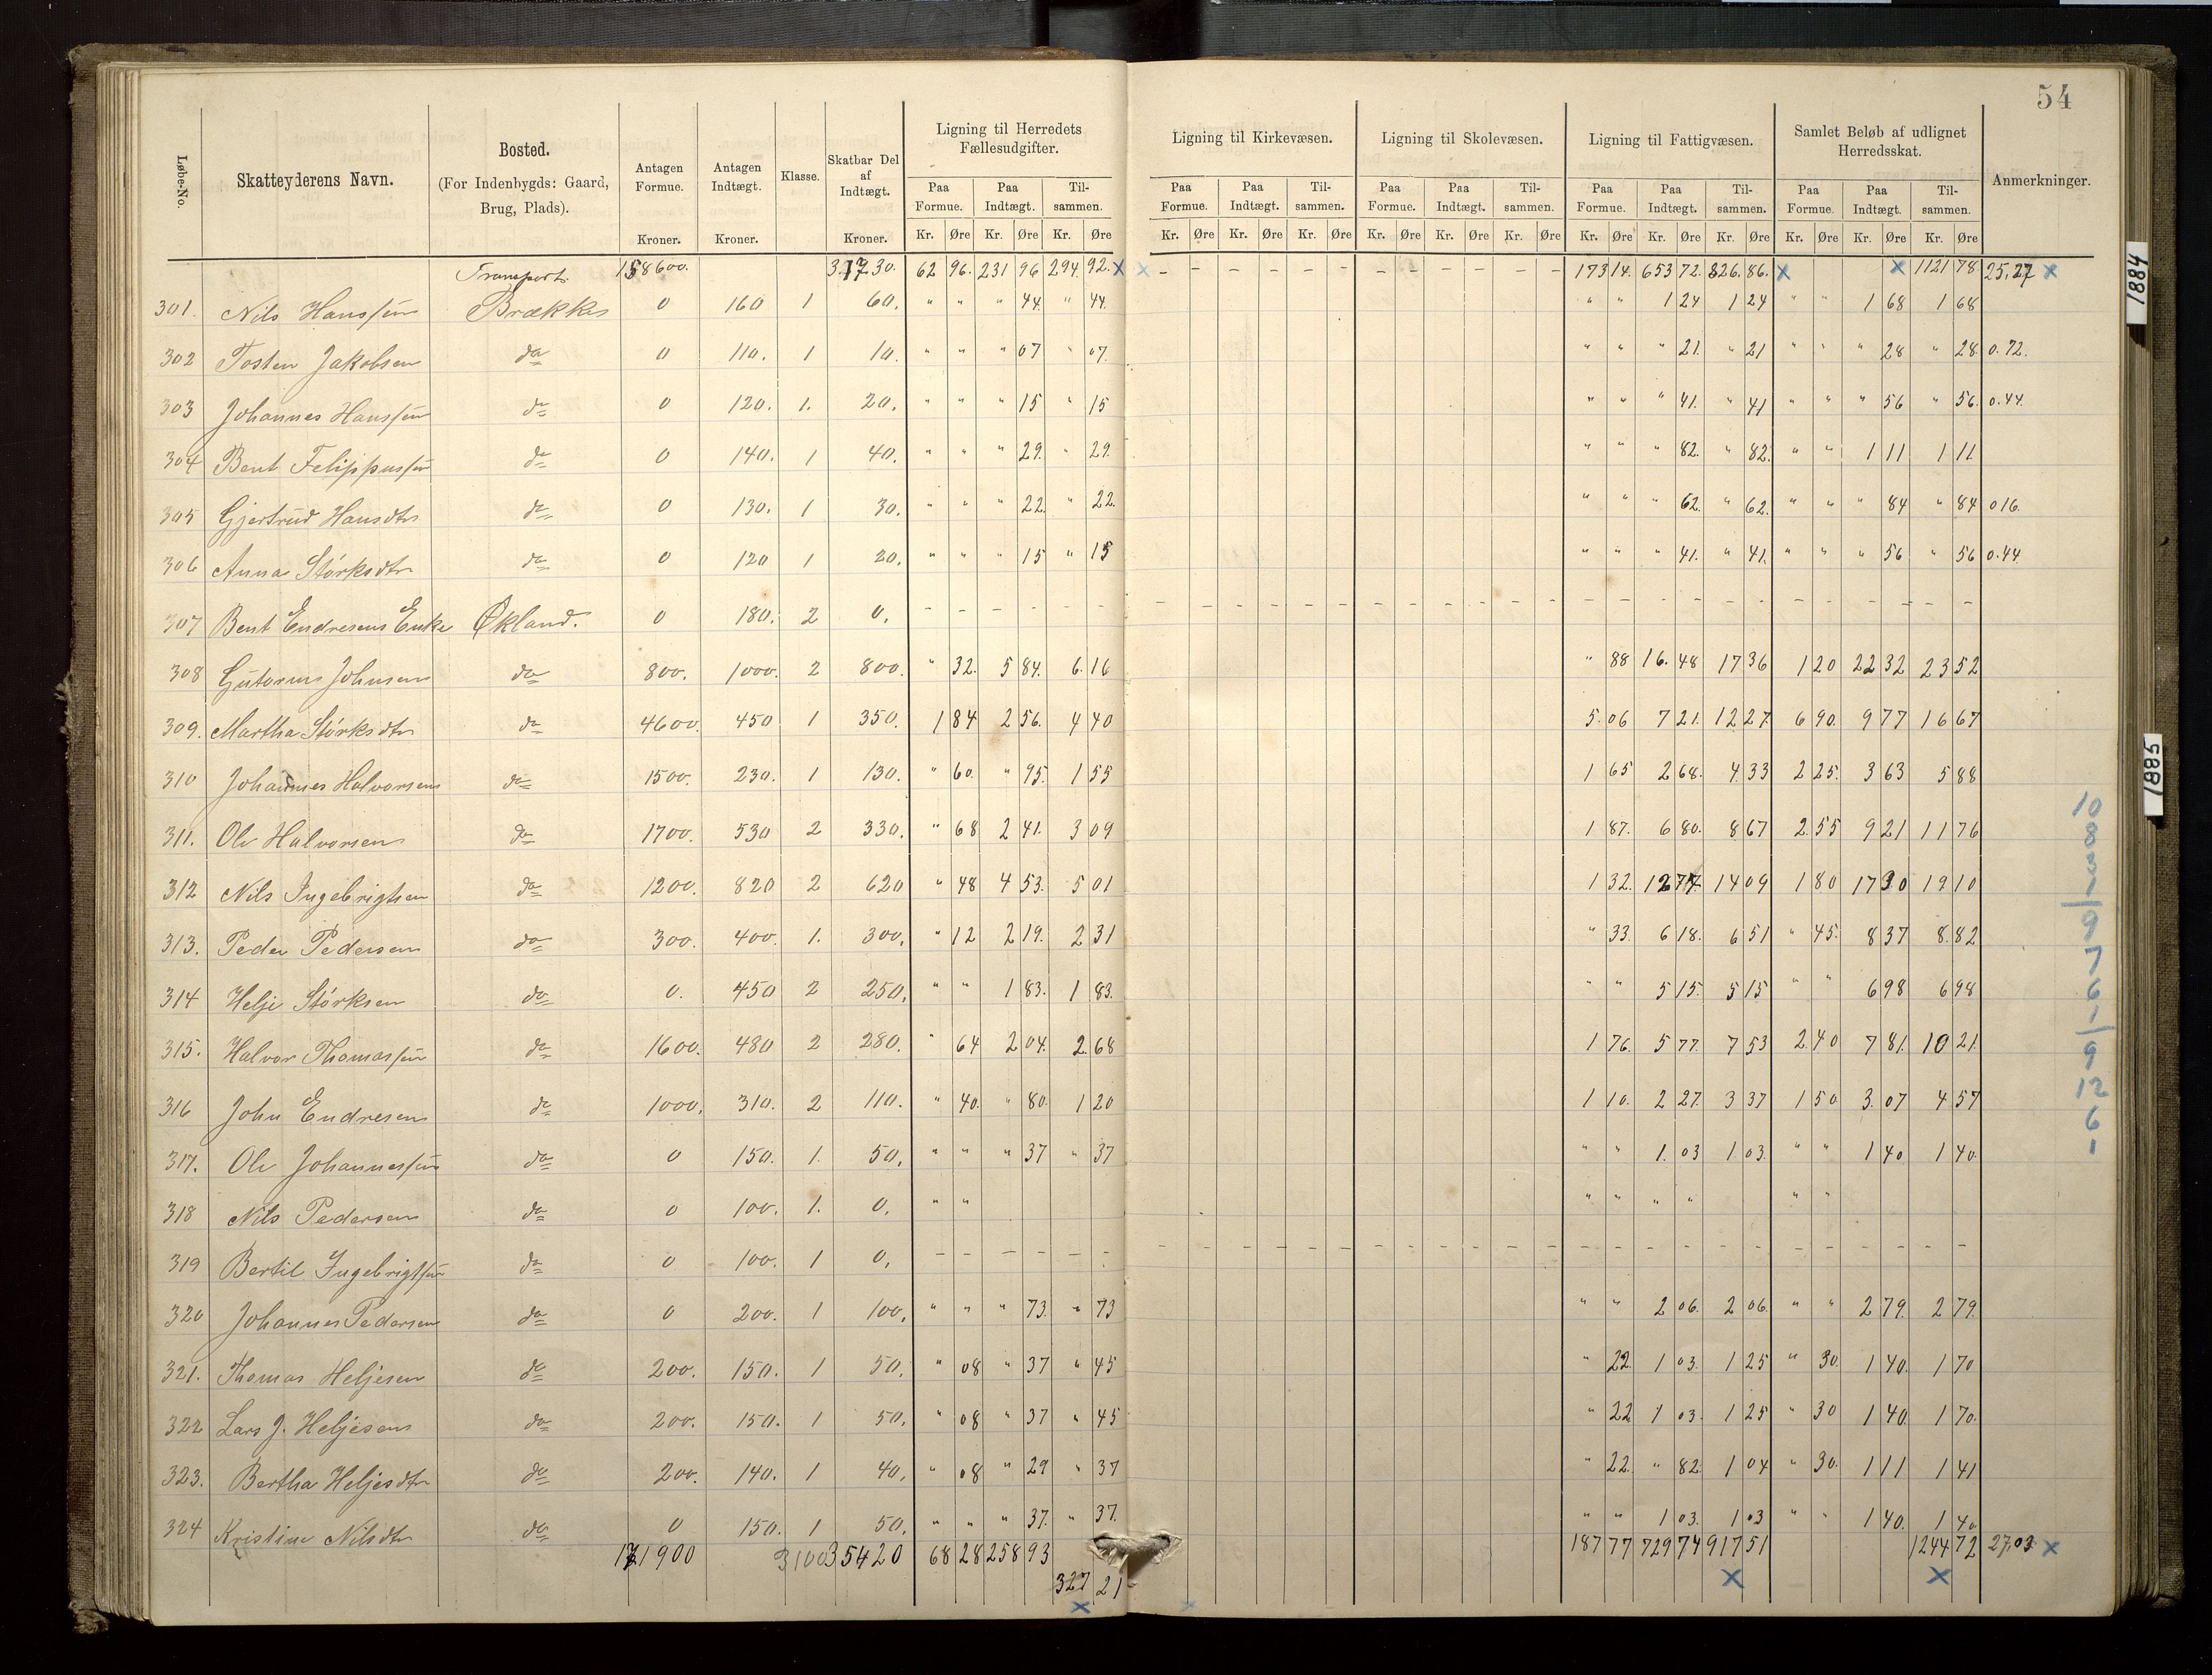 54
Løbe-No. Skatteyderens Navn. Bosted. (For Indenbygds: Gaard, Brug, Plads). Antagen Formue. Kroner. Antagen Indtægt. Kroner. Klasse. Skatbar Del af Indtægt. Kroner. Ligning til Herredets Fællesudgifter. Ligning til Kirkevæsen. Ligning til Skolevæsen. Ligning til Fattigvæsen. Samlet Beløb af udlignet Herredsskat. Anmerkninger.
Paa Formue. Paa Indtægt. Tilsammen. Paa Formue. Paa Indtægt. Tilsammen. Paa Formue. Paa Indtægt. Tilsammen. Paa Formue. Paa Indtægt. Tilsammen. Paa Formue. Paa Indtægt. Tilsammen.
Kr. Øre Kr. Øre Kr. Øre Kr. Øre Kr. Øre Kr. Øre Kr. Øre Kr. Øre Kr. Øre Kr. Øre Kr. Øre Kr. Øre Kr. Øre Kr. Øre Kr. Øre
Transport. 158600. 31730. 62 96. 231 96 294 92. x x - - - - - - - - - - - - 173 14. 653 72. 826. 86. x x 1121 78. 25,27 x
301. Nils Hanssen Brække 0 160 1 60. " " " 44. " 44. " " 1 24 1 24 " " 1 68 1 68
302 Tosten Jakobsen do 0 110. 1 10. " " " 07 " 07. " " " 21. " 21 " " " 28 " 28. 0.72.
303 Johannes Hanssen do 0 120. 1. 20. " " " 15 " 15 " " " 41. " 41 " " " 56 " 56. 0.44.
304 Bent Felippussen do 0 140. 1 40. " " " 29. " 29. " " " 82. " 82. " " 1 11 1 11
305 Gjertrud Hansdtr do 0 130. 1 30. " " " 22. " 22. " " " 62. " 62. " " " 84 " 84 0 16.
306 Anna Størksdtr do 0 120 1 20. " " " 15 " 15 " " " 41. " 41. " " " 56 " 56 0.44.
307 Bent Endresens Enke Økland. 0 180. 2 0. - - - - - - - - - - - - - - - - - - - - - - - - - - - - - -
308 Gutorm Johnsen do 800. 1000. 2 800. " 32. 5 84. 6. 16 " 88 16. 48 17 36 1 20 22 32 23 52
309. Martha Størksdtr do 4600. 450 1 350. 1 84 2 56. 4 40 5. 06 7 21. 12 27. 6 90. 9 77 16 67
310 Johannes Halvorsen do 1500. 230. 1 130. " 60. " 95. 1 55 1 65 2 68. 4. 33 2 25. 3 63 5 88
311. Ole Halvorsen do 1700. 530 2 330. " 68 2 41. 3 09 1 87. 6 80. 8 67 2. 55 9 21 11 76
312 Nils Ingebrigtsen do 1200. 820 2 620 " 48 4 53. 5 01 1 32. 12 77 14 09 1 80 17 30 19 10
313. Peder Pedersen do 300. 400. 1. 300. " 12 2 19. 2 31 " 33. 6 18. 6 51 " 45. 8 37 8. 82
314 Helje Størksen do 0. 450 2 250. " " 1 83. 1 83. " " 5 15. 5 15 " " 6 98 6 98
315. Halvor Thomassen do 1600. 480 2 280. " 64 2 04. 2. 68 1 76. 5 77. 7 53 2. 40 7 81. 10 21.
316 John Endresen do 1000. 310. 2 110. " 40. " 80. 1 20 1 10. 2 27. 3 37 1 50 3. 07 4 57
317. Ole Johannessen do 0 150. 1. 50. " " " 37 " 37 " " 1. 03 1 03. " " 1 40 1 40.
318 Nils Pedersen do 0 100. 1. 0. " " " " " " " "
319 Bertil Ingebrigtsen do 0 100. 1 0. - - - - - - - - - - - - - - - - - - - - - - - - - - - - - -
320 Johannes Pedersen do 0 200. 1 100. " " " 73. " 73 " " 2 06. 2 06. " " 2 79. 2 79.
321. Thomas Heljesen do 200. 150. 1 50. " 08 " 37 " 45 " 22. 1 03. 1 25 " 30. 1 40. 1 70
322 Lars J. Heljesen do 200. 150. 1 50. " 08 " 37 " 45 " 22 1 03. 1 25 " 30 1 40. 1 70.
323. Bertha Heljesdtr do 200. 140. 1 40. " 08 " 29 " 37 " 22. " 82. 1 04 " 30. 1 11 1 41
324 Kristine Nilsdtr do 0 150. 1 50. " " " 37. " 37. " " 1 03. 1 03 " " 1 40. 1 40
171900 3100 35420 68 28 258 93 187 77 729 74 917 51 1244 72 27,03 x
327 21 x x
x x
10
8
3
1
9
7
6
1
9
12
6
1
1884
1885